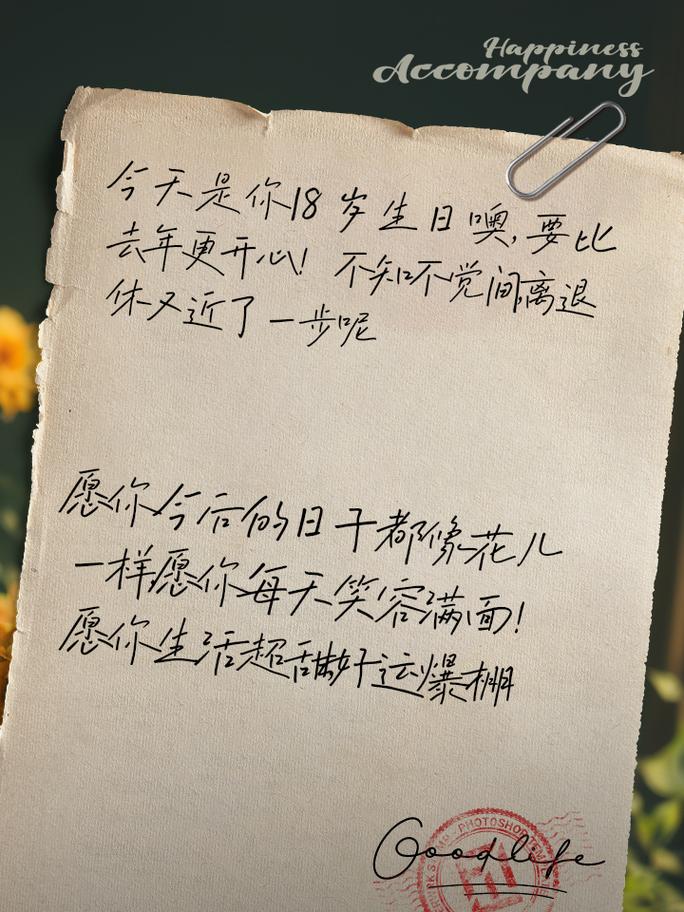 Happiness
Accompany
今天是你18岁生日噢,要比
去年更开心! 不知不觉间离退
休又近了一步呢
愿你今后的日子都像花儿
一样愿你每天笑容满面!
愿你生活超甜好运爆棚
PHOTOSHOP
Goodlife